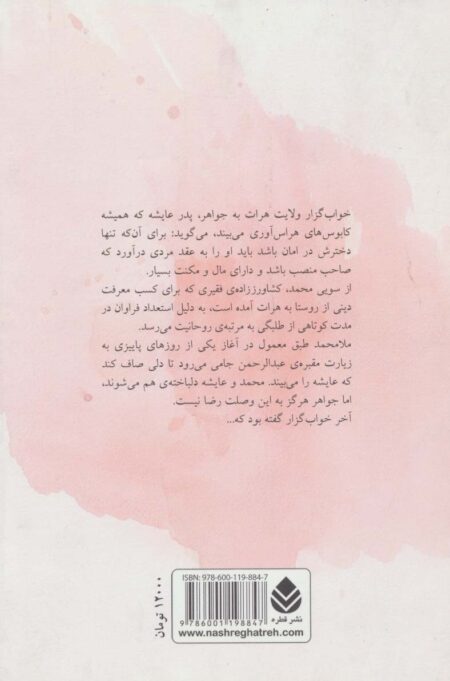 خواب‌گزار ولایت هرات به جواهر، پدر عایشه که همیشه
کابوس‌های هراس‌آوری می‌بیند، می‌گوید: برای آن‌که تنها
دخترش در امان باشد باید او را به عقد مردی درآورد که
صاحب منصب باشد و دارای مال و مکنت بسیار.
از سویی محمد، کشاورززاده‌ی فقیری که برای کسب معرفت
دینی از روستا به هرات آمده است، به دلیل استعداد فراوان در
مدت کوتاهی از طلبگی به مرتبه‌ی روحانیت می‌رسد.
ملامحمد طبق معمول در آغاز یکی از روزهای پاییزی به
زیارت مقبره‌ی عبدالرحمن جامی می‌رود تا دلی صاف کند
که عایشه را می‌بیند. محمد و عایشه دلباخته‌ی هم می‌شوند،
اما جواهر هرگز به این وصلت رضا نیست.
آخر خواب‌گزار گفته بود که...
۱۲۰۰۰ تومان
ISBN: 978-600-119-884-7
9 786001 198847
نشر قطره
www.nashreghatreh.com